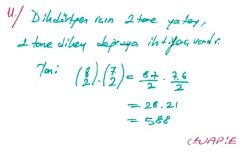 4/ Dikdörtgen için 2 tane yatay,
2 tane dikey doğruya ihtiyacı vardır.
Yani (8 2).(7 2) = 8.7/2 . 7.6/2
= 28.21
= 588
CEVAP:E